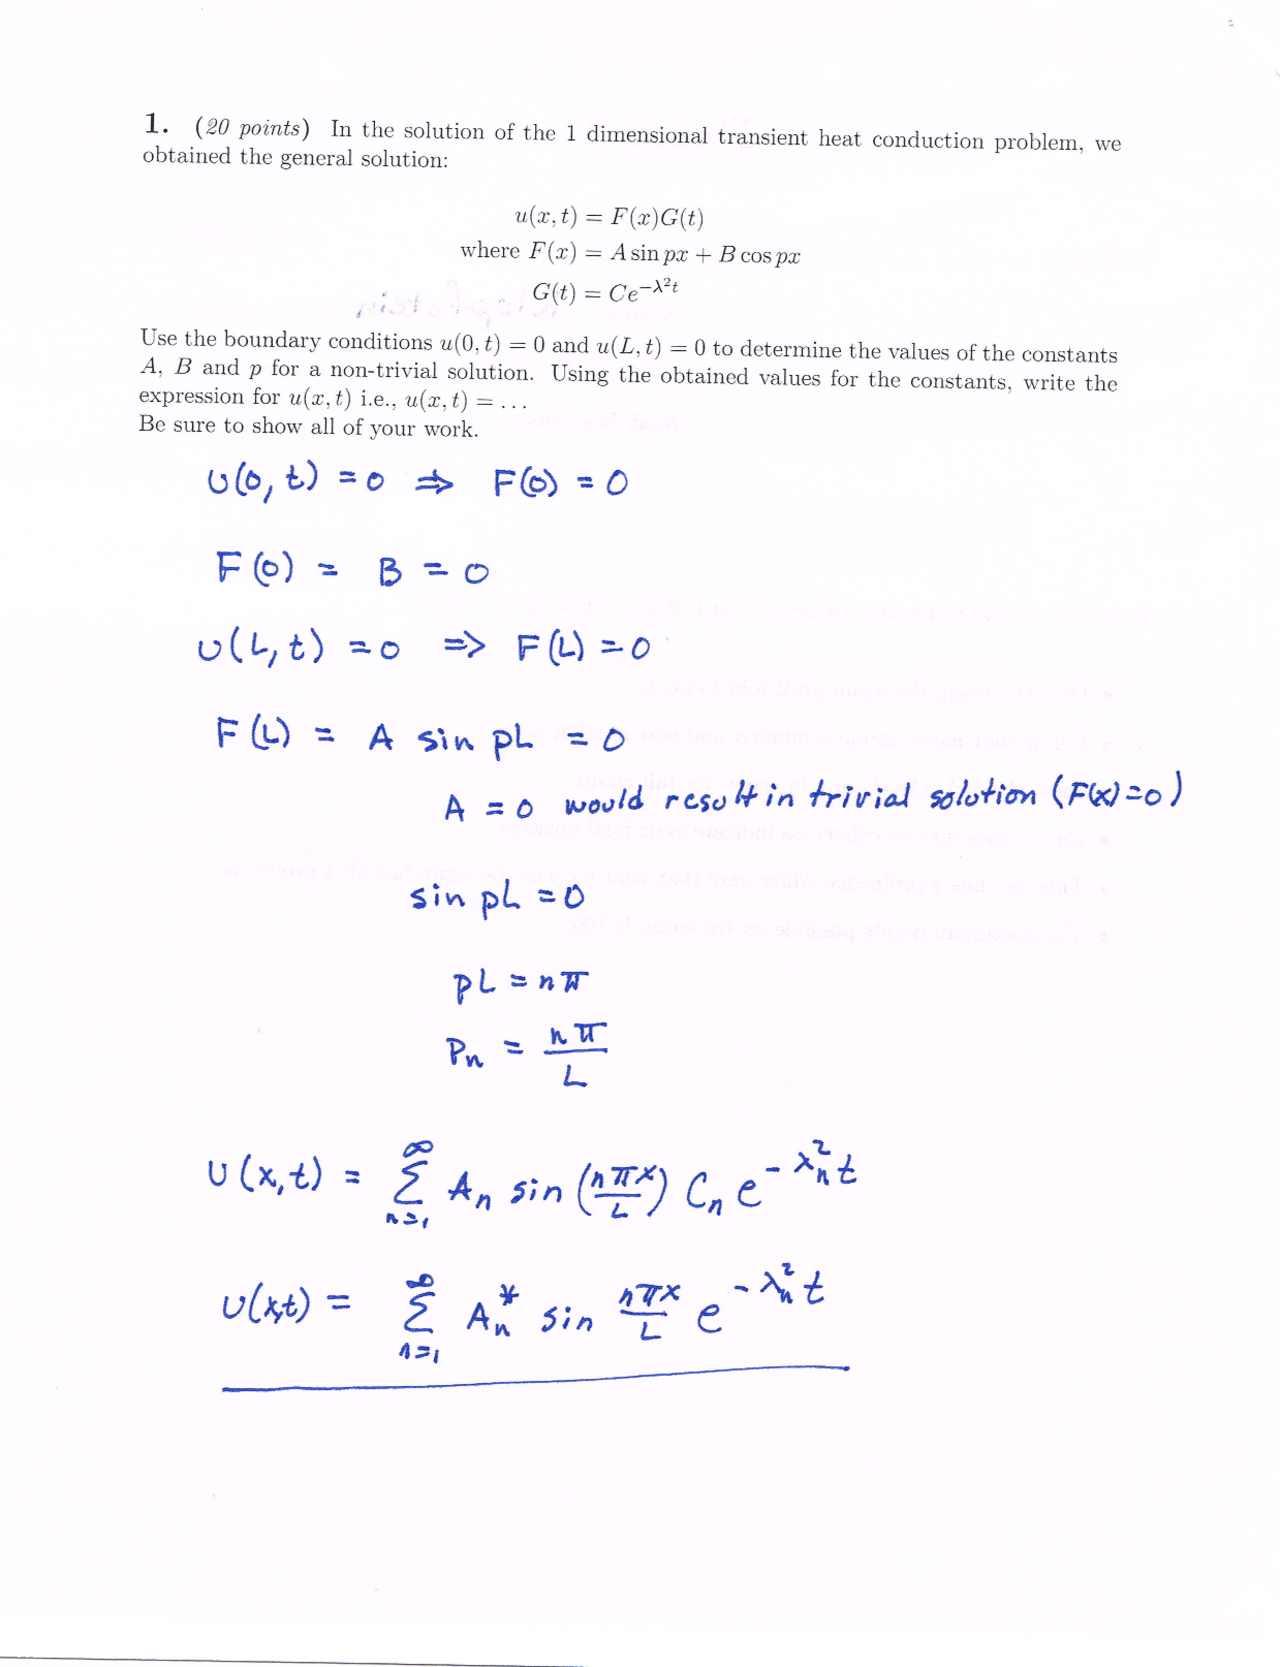 1. (20 points) In the solution of the 1 dimensional transient heat conduction problem, we
obtained the general solution:
u(x, t) = F(x)G(t)
where F(x) = A sin px + B cos px
G(t) = Ce^{-λ²t}
Use the boundary conditions u(0, t) = 0 and u(L, t) = 0 to determine the values of the constants
A, B and p for a non-trivial solution. Using the obtained values for the constants, write the
expression for u(x, t) i.e., u(x, t) = ...
Be sure to show all of your work.
U(0, t) = 0 ⇒ F(0) = 0
F(0) = B = 0
U(L, t) = 0 => F(L) = 0
F(L) = A sin pL = 0
A = 0 would result in trivial solution (F(x)=0)
sin pL = 0
pL = nπ
P_n = nπ/L
U(x,t) = ∑_{n=1}^{∞} A_n sin (nπx/L) C_n e^{-λ_n² t}
U(x,t) = ∑_{n=1}^{∞} A_n^* sin nπx/L e^{-λ_n² t}